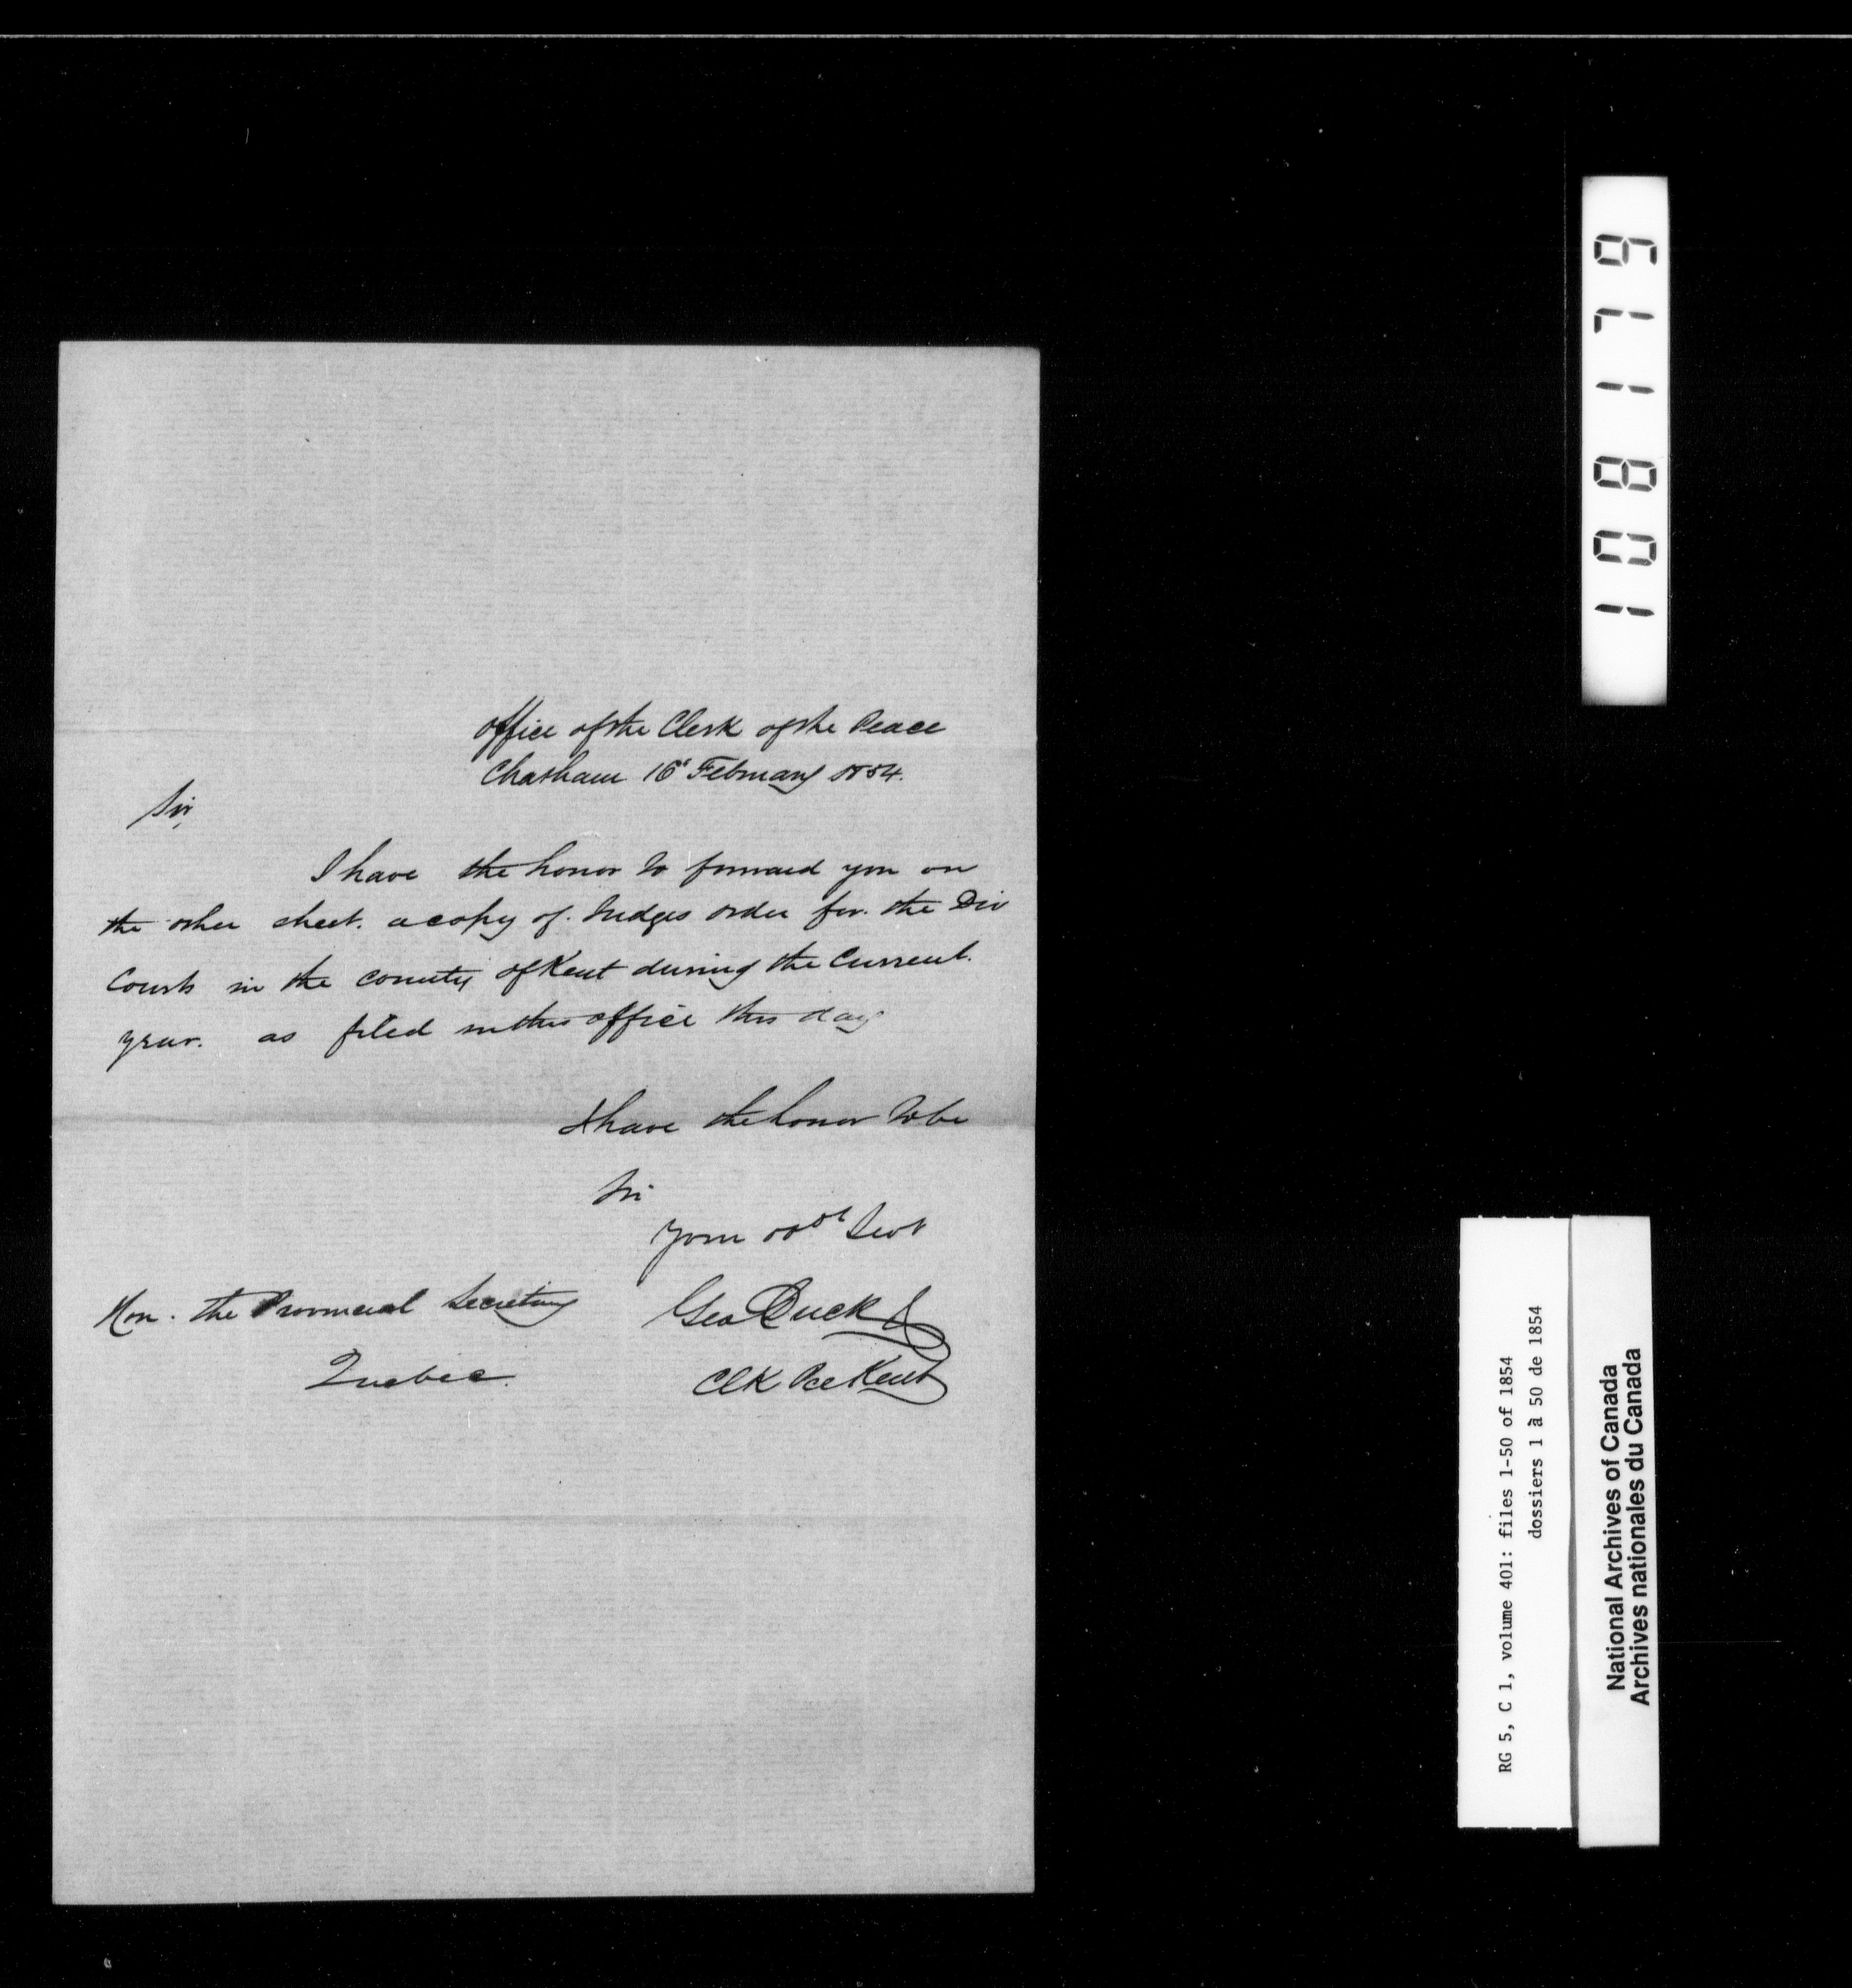 Office of the Clerk of the Peace
Chatham 16t February 1854.
Sir,
I have the honor to forward you on
the other sheet. a copy of. Judges order for. the Div
Courts in the county of Kent during the Current.
year. as filed in this office this day
I have the honor to be
Sir
Your obdt Servt
Geo Duck
Clk Pce Kent
Hon. the Provincial Secretary
Quebec.
108179
RG 5, C 1, volume 401: files 1-50 of 1854
dossiers 1 à 50 de 1854
National Archives of Canada
Archives nationales du Canada